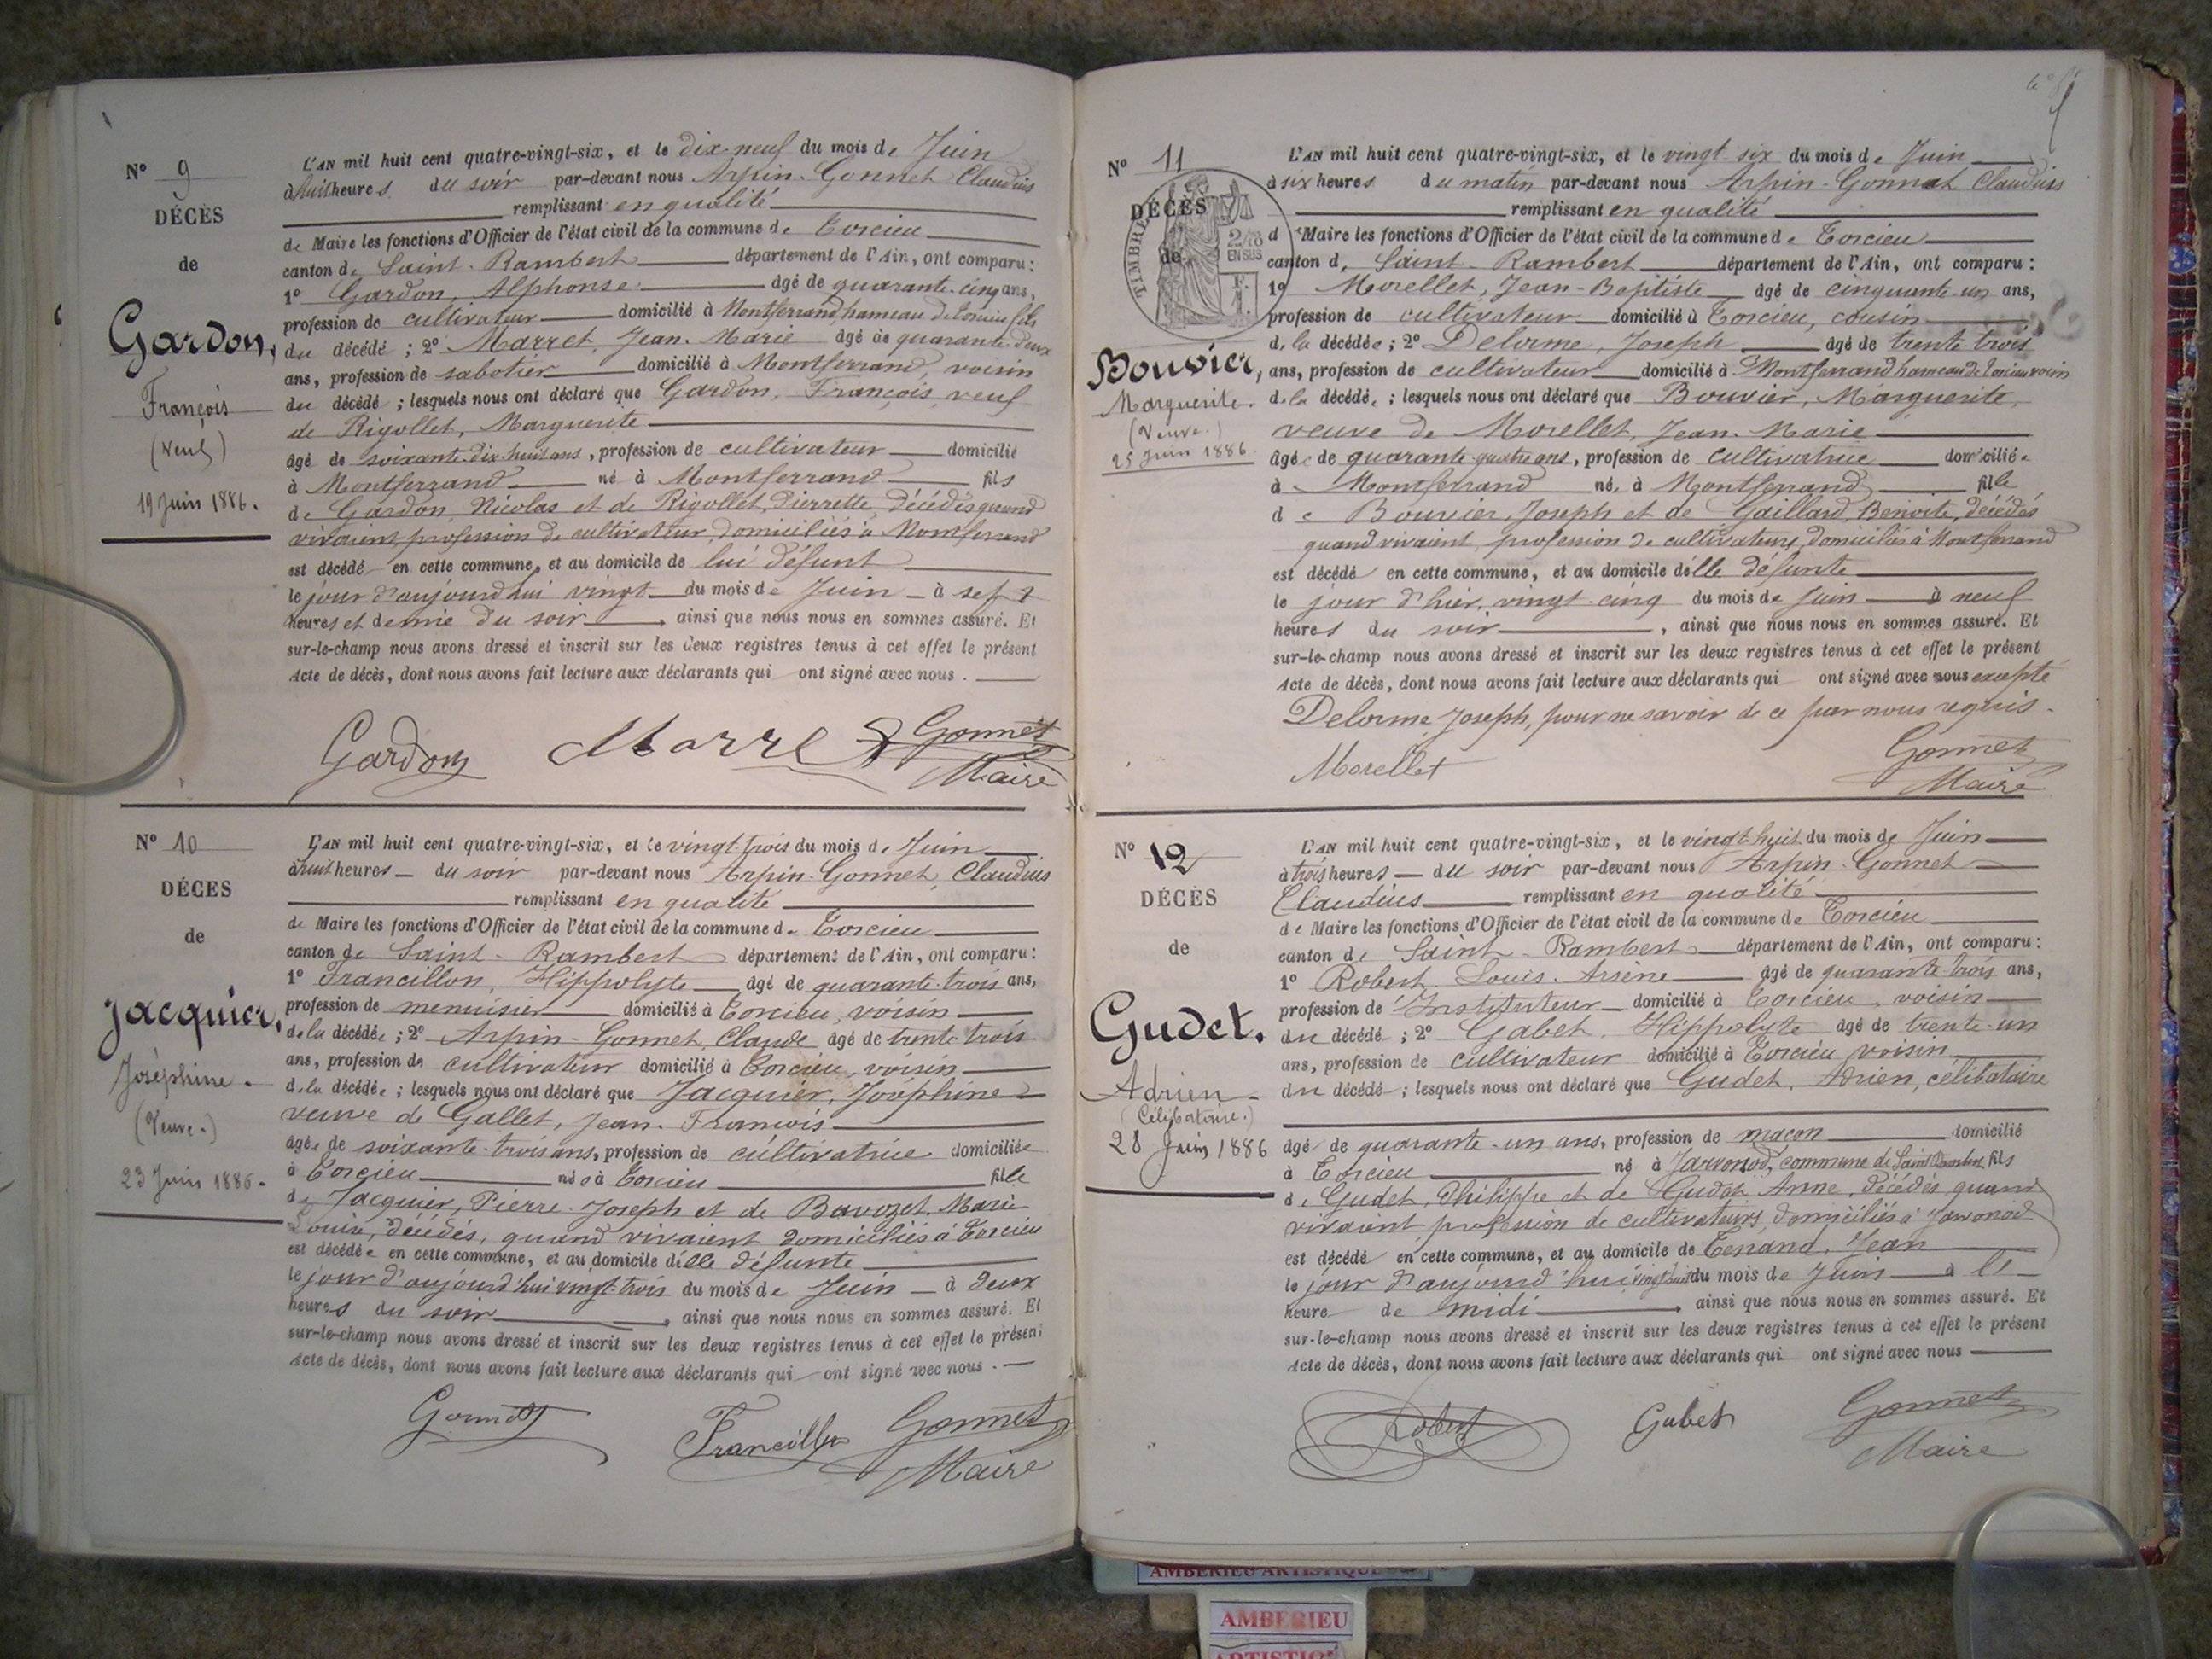 N° 9
DÉCÈS
de
Gardon,
François
(Veuf)
19 Juin 1886.
L'AN mil huit cent quatre-vingt-six, et le dix-neuf du mois de Juin
à huit heures du soir par-devant nous Arpin-Gonnet Claudius
remplissant en qualité
de Maire les fonctions d'Officier de l'état civil de la commune de Torcieu
canton de Saint-Rambert département de l'Ain, ont comparu :
1° Gardon, Alphonse âgé de quarante-cinq ans,
profession de cultivateur domicilié à Montferrand, hameau de Torcieu fils
du décédé ; 2° Marret, Jean-Marie âgé de quarante-deux
ans, profession de sabotier domicilié à Montferrand, voisin
du décédé ; lesquels nous ont déclaré que Gardon, François, veuf
de Rigollet, Marguerite
âgé de soixante-dix-huit ans, profession de cultivateur domicilié
à Montferrand né à Montferrand fils
de Gardon, Nicolas et de Rigollet, Pierrette, décédés quand
vivaient, profession de cultivateur, domiciliés à Montferrand
est décédé en cette commune, et au domicile de lui défunt
le jour d'aujourd'hui vingt du mois de Juin à sept
heures et demie du soir, ainsi que nous nous en sommes assuré. Et
sur-le-champ nous avons dressé et inscrit sur les deux registres tenus à cet effet le présent
Acte de décès, dont nous avons fait lecture aux déclarants qui ont signé avec nous.
Gardon Marret Gonnet
Maire
N° 10
DÉCÈS
de
Jacquier,
Joséphine.
(Veuve.)
23 Juin 1886.
L'AN mil huit cent quatre-vingt-six, et le vingt-trois du mois de Juin
à huit heures du soir par-devant nous Arpin-Gonnet, Claudius
remplissant en qualité
de Maire les fonctions d'Officier de l'état civil de la commune de Torcieu
canton de Saint-Rambert département de l'Ain, ont comparu :
1° Francillon, Hippolyte âgé de quarante-trois ans,
profession de menuisier domicilié à Torcieu, voisin
de la décédée ; 2° Arpin-Gonnet, Claude âgé de trente-trois
ans, profession de cultivateur domicilié à Torcieu, voisin
de la décédée ; lesquels nous ont déclaré que Jacquier, Joséphine
veuve de Gallet, Jean-François
âgée de soixante-trois ans, profession de cultivatrice domiciliée
à Torcieu née à Torcieu fille
de Jacquier, Pierre-Joseph et de Bavozet, Marie
Louise, décédés, quand vivaient domiciliés à Torcieu
est décédée en cette commune, et au domicile d'elle défunte
le jour d'aujourd'hui vingt-trois du mois de Juin à deux
heures du soir, ainsi que nous nous en sommes assuré. Et
sur-le-champ nous avons dressé et inscrit sur les deux registres tenus à cet effet le présent
Acte de décès, dont nous avons fait lecture aux déclarants qui ont signé avec nous.
Gonnet Francillon Gonnet
Maire
N° 11
DÉCÈS
de
TIMBRE
2/10
EN SUS
Bouvier,
Marguerite.
(Veuve.)
25 Juin 1886.
L'AN mil huit cent quatre-vingt-six, et le vingt-six du mois de Juin
à six heures du matin par-devant nous Arpin-Gonnet Claudius
remplissant en qualité
de Maire les fonctions d'Officier de l'état civil de la commune de Torcieu
canton de Saint-Rambert département de l'Ain, ont comparu :
1° Morellet, Jean-Baptiste âgé de cinquante-un ans,
profession de cultivateur domicilié à Torcieu, cousin
de la décédée ; 2° Delorme, Joseph âgé de trente trois
ans, profession de cultivateur domicilié à Montferrand hameau de Torcieu voisin
de la décédée ; lesquels nous ont déclaré que Bouvier, Marguerite,
veuve de Morellet, Jean-Marie
âgée de quarante-quatre ans, profession de cultivatrice domiciliée
à Montferrand née à Montferrand fille
de Bouvier, Joseph et de Gaillard, Benoite, décédés
quand vivaient, profession de cultivateurs, domiciliés à Montferrand
est décédé en cette commune, et au domicile d'elle défunte
le jour d'hier, vingt-cinq du mois de Juin à neuf
heures du soir, ainsi que nous nous en sommes assuré. Et
sur-le-champ nous avons dressé et inscrit sur les deux registres tenus à cet effet le présent
Acte de décès, dont nous avons fait lecture aux déclarants qui ont signé avec nous excepté
Delorme, Joseph, pour ne savoir de ce par nous requis.
Morellet Gonnet
Maire
N° 12
DÉCÈS
de
Gudet.
Adrien
(Célibataire.)
28 Juin 1886
L'AN mil huit cent quatre-vingt-six, et le vingt-huit du mois de Juin
à trois heures du soir par-devant nous Arpin-Gonnet
Claudius remplissant en qualité
de Maire les fonctions d'Officier de l'état civil de la commune de Torcieu
canton de Saint-Rambert département de l'Ain, ont comparu :
1° Robert, Louis-Arsène âgé de quarante trois ans,
profession d'Instituteur domicilié à Torcieu, voisin
du décédé ; 2° Gabet, Hippolyte âgé de trente-un
ans, profession de cultivateur domicilié à Torcieu, voisin
du décédé ; lesquels nous ont déclaré que Gudet, Adrien, célibataire
âgé de quarante-un ans, profession de maçon domicilié
à Torcieu né à Javornod, commune de Saint-Rambert fils
de Gudet, Philippe et de Gudet Anne, décédés quand
vivaient, profession de cultivateurs, domiciliés à Javornod
est décédé en cette commune, et au domicile de Tenand, Jean
le jour d'aujourd'hui vingt-huit du mois de Juin à l'
heure de midi, ainsi que nous nous en sommes assuré. Et
sur-le-champ nous avons dressé et inscrit sur les deux registres tenus à cet effet le présent
Acte de décès, dont nous avons fait lecture aux déclarants qui ont signé avec nous
Robert Gabet Gonnet
Maire
AMBERIEU ARTISTIQUE
AMBERIEU
ARTISTIQUE